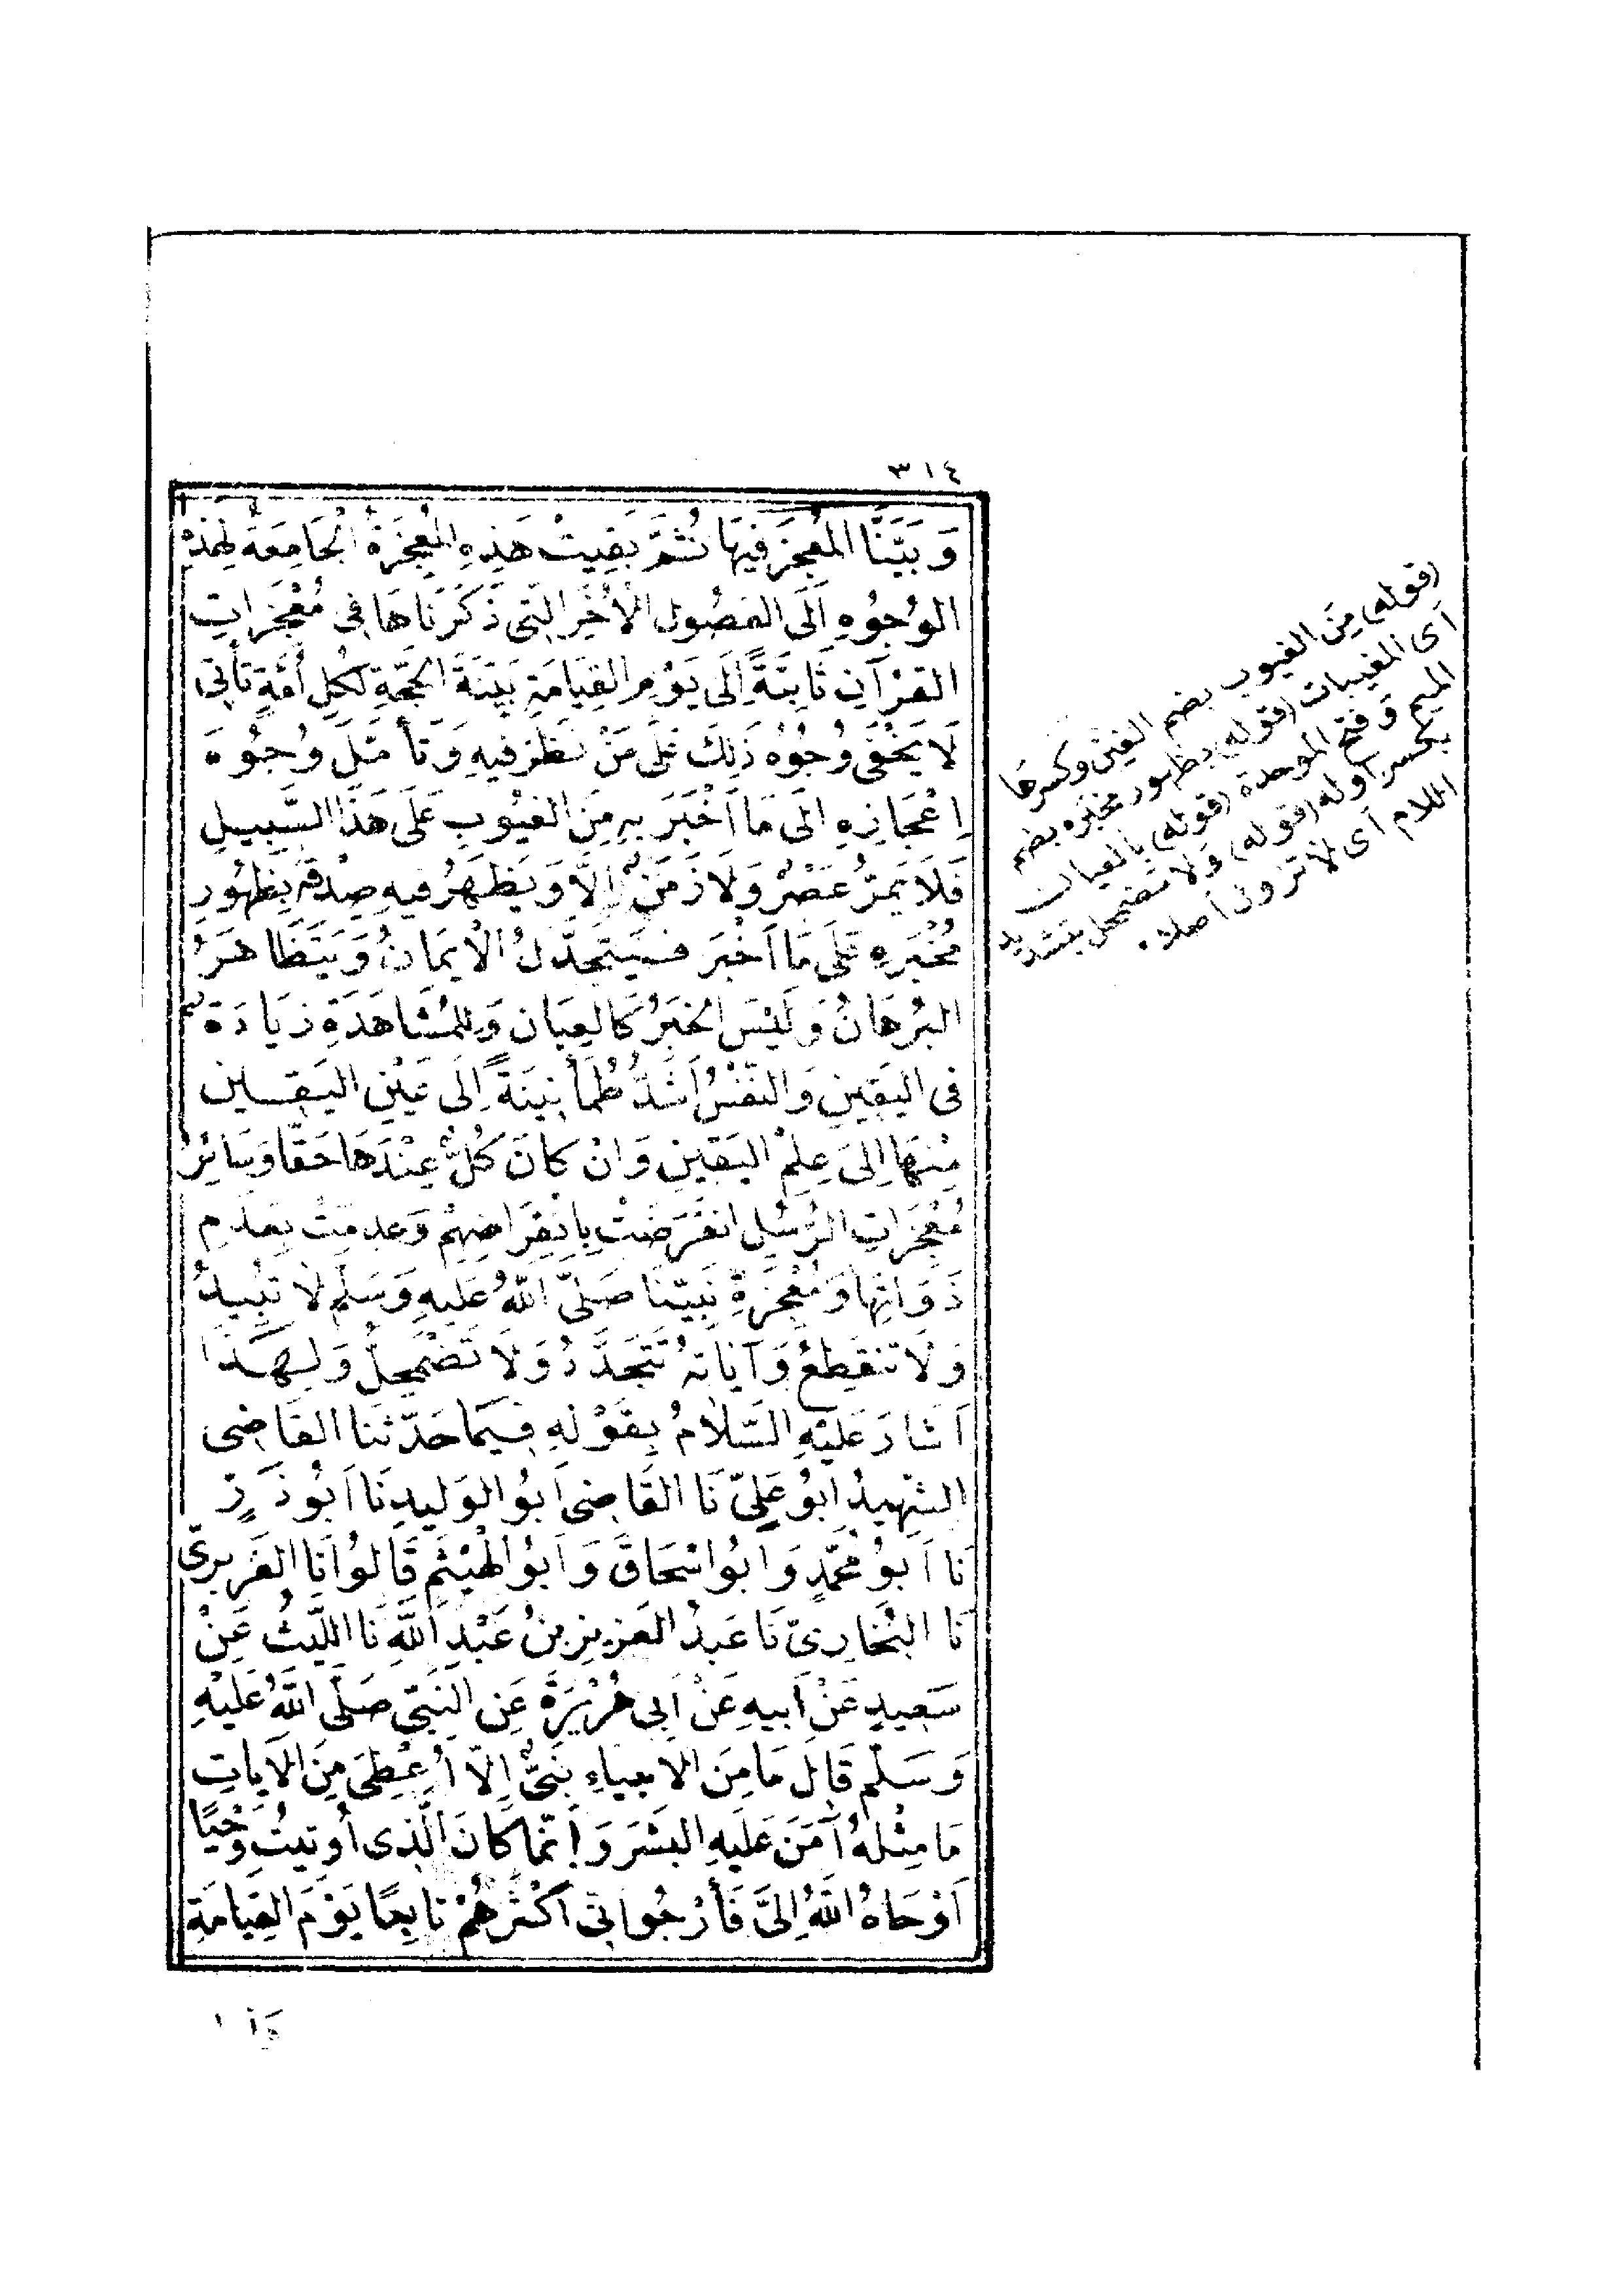 ٣١٤
وَبَيَّنَّا الْمُعْجِزَ فِيهَا ثُمَّ بَقِيَتْ هَذِهِ الْمُعْجِزَةُ الْجَامِعَةُ لِهَذِهِ
الوُجُوهِ إِلَى الفُصُولِ الْأُخَرِ الَّتِى ذَكَرْنَاهَا فِى مُعْجِزَاتِ
القُرْآنِ ثَابِتَةً إِلَى يَوْمِ القِيَامَةِ بَيِّنَةَ الحُجَّةِ لِكُلِّ أُمَّةٍ تَأْتِى
لَا يَخْفَى وُجُوهُ ذَلِكَ عَلَى مَنْ نَظَرَ فِيهِ وَتَأَمَّلَ وُجُوهَ
إِعْجَازِهِ إِلَى مَا أَخْبَرَ بِهِ مِنَ الغُيُوبِ عَلَى هَذَا السَّبِيلِ
فَلَا يَمُرُّ عَصْرٌ وَلَا زَمَنٌ إِلَّا وَيَظْهَرُ فِيهِ صِدْقُهُ بِظُهُورِ
مُخْبَرِهِ عَلَى مَا أَخْبَرَ فَيَتَجَدَّدُ الْإِيمَانُ وَيَتَظَاهَرُ
البُرْهَانُ وَلَيْسَ الخَبَرُ كَالعِيَانِ وَلِلمُشَاهَدَةِ زِيَادَةٌ
فِى اليَقِينِ وَالنَّفْسُ أَشَدُّ طُمَأْنِينَةً إِلَى عَيْنِ اليَقِينِ
مِنْهَا إِلَى عِلْمِ اليَقِينِ وَإِنْ كَانَ كُلٌّ عِنْدَهَا حَقًّا وَسَائِرُ
مُعْجِزَاتِ الرُّسُلِ انْقَرَضَتْ بِانْقِرَاضِهِمْ وَعُدِمَتْ بِعَدَمِ
ذَوَاتِهَا وَمُعْجِزَةُ نَبِيِّنَا صَلَّى اللَّهُ عَلَيْهِ وَسَلَّمَ لَا تَبِيدُ
وَلَا تَنْقَطِعُ وَآيَاتُهُ تَتَجَدَّدُ وَلَا تَضْمَحِلُّ وَلِهَذَا
أَشَارَ عَلَيْهِ السَّلَامُ بِقَوْلِهِ فِيمَا حَدَّثَنَا القَاضِى
الشَّهِيدُ أَبُو عَلِىٍّ نَا القَاضِى أَبُو الوَلِيدِ نَا أَبُو ذَرٍّ
نَا أَبُو مُحَمَّدٍ وَأَبُو إِسْحَاقَ وَأَبُو الْهَيْثَمِ قَالُوا نَا الفَرَبْرِىُّ
نَا البُخَارِىُّ نَا عَبْدُ العَزِيزِ بْنُ عَبْدِ اللَّهِ نَا اللَّيْثُ عَنْ
سَعِيدٍ عَنْ أَبِيهِ عَنْ أَبِى هُرَيْرَةَ عَنِ النَّبِىِّ صَلَّى اللَّهُ عَلَيْهِ
وَسَلَّمَ قَالَ مَا مِنَ الأَنْبِيَاءِ نَبِىٌّ إِلَّا أُعْطِىَ مِنَ الآيَاتِ
مَا مِثْلُهُ آمَنَ عَلَيْهِ البَشَرُ وَإِنَّمَا كَانَ الَّذِى أُوتِيتُ وَحْيًا
أَوْحَاهُ اللَّهُ إِلَىَّ فَأَرْجُو أَنِّى أَكْثَرُهُمْ تَابِعًا يَوْمَ القِيَامَةِ
(قوله) مِنَ الغيوب بضم الغين وكسرها
أى المغيبات (قوله) بظهور مخبره بضم
الميم وفتح الموحدة (قوله) بالعيان
بكسر أوله (قوله) ولا تضمحل بتشديد
اللام أى لا تزول أصلا.